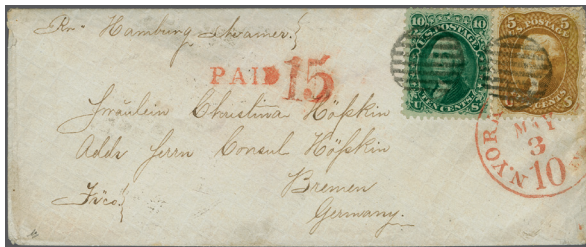 Per Hamburg Steamer.
PAID 15
Fräulein Christina Höpkin
Addr Herrn Consul Höpkin
Bremen
Germany.
Frco.
10 10
U.S. POSTAGE
TEN CENTS
U S
5 5
U.S. POSTAGE
CENTS
N. YORK
MAY
3
10